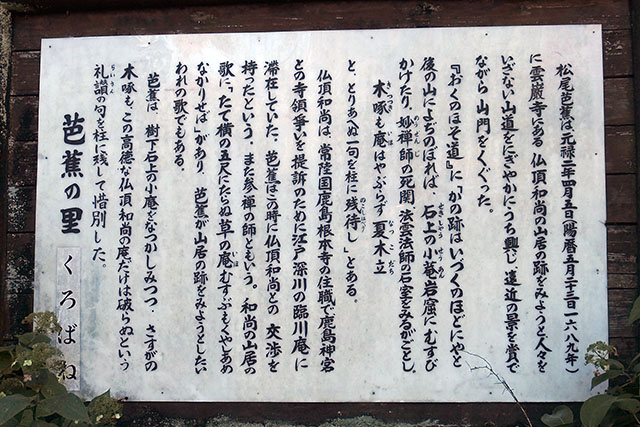 松尾芭蕉は元禄二年四月五日(陽暦五月二十三日一六八九年)
に雲巌寺にある 仏頂和尚の山居の跡をみようと人々を
いざない山道をにぎやかにうち興じ 遠近の景を賞で
ながら 山門をくぐった。
『おくのほそ道』に「かの跡はいづくのほどにやと
後の山によぢのぼれば、石上の小菴岩窟にむすび
せきしょう しょうあん
かけたり。妙禅師の死関、法雲法師の石室をみるがごとし。
めうぜんじ
木啄も庵はやぶらず夏木立
きつつき いほ なつ こだち
と、とりあへぬ一句を柱に残侍し」とある。
のこしはべり
仏頂和尚は、常陸国鹿島根本寺の住職で鹿島神宮
との寺領爭いを提訴のために江戸深川の臨川庵に
滞在していた。芭蕉はこの時に仏頂和尚との 交渉を
持ったという。また参禅の師ともいう。 和尚の山居の
歌に「たて横の五尺にたらぬ草の庵むすぶもくやしあめ
いほ
なかりせば」があり、芭蕉が山居の跡をみようとしたい
われの歌でもある。
芭蕉は、樹下石上の小庵をなつかしみつつ、さすがの
木啄も、この高徳な仏頂和尚の庵だけは破らぬという
礼讃の句を柱に残して惜別した。
らいさん
芭蕉の里 くろばね